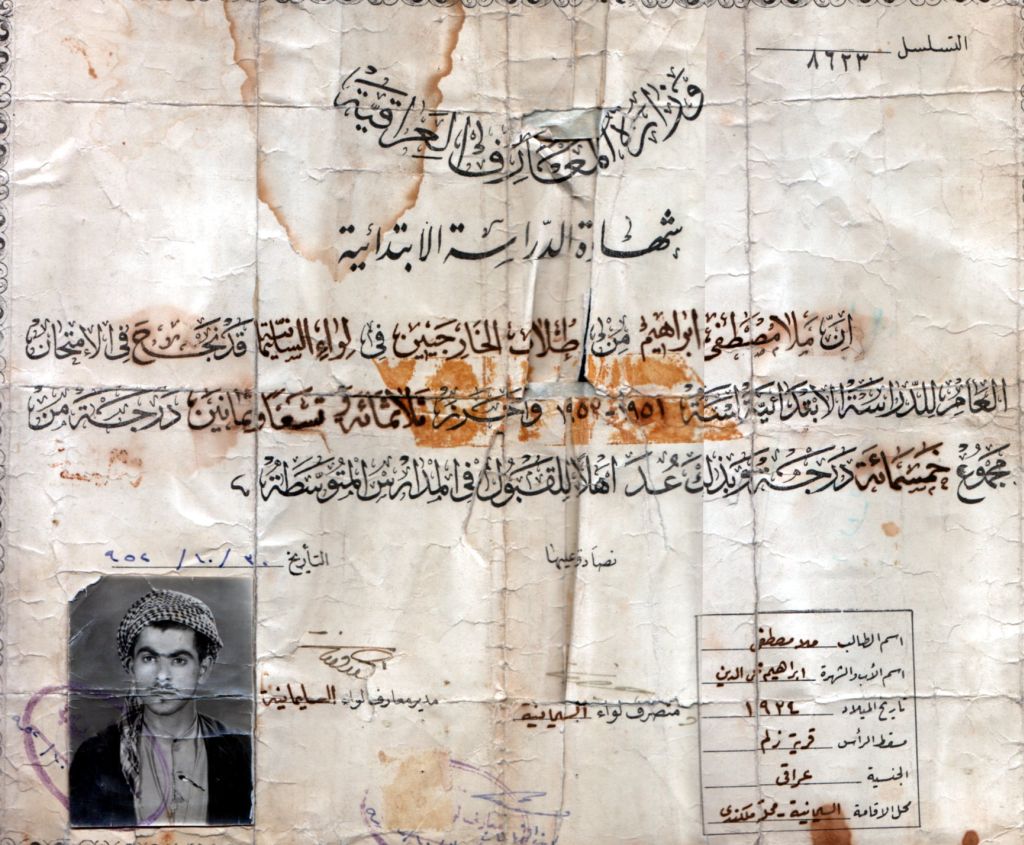 التسلسل ٨٦٢٣
وزارة المعارف العراقية
شهادة الدراسة الابتدائية
ان ملا مصطفى ابراهيم من طلاب الخارجيين في لواء السليمانية قد نجح في الامتحان
العام للدراسة الابتدائية لسنة ١٩٥١-١٩٥٢ واحرز ثلاثمائة وتسعا وثمانين درجة من
مجموع خمسمائة درجة وبذلك عد اهلا للقبول في المدارس المتوسطة
نصادق عليها
التأريخ ٣٠/١٠/٩٥٢
متصرف لواء السليمانية
مدير معارف لواء السليمانية
اسم الطالب ملا مصطفى
اسم الأب والشهرة ابراهيم الدين
تاريخ الميلاد ١٩٢٤
مسقط الرأس قرية زلم
الجنسية عراقي
محل الاقامة السليمانية - محلة ملكندي